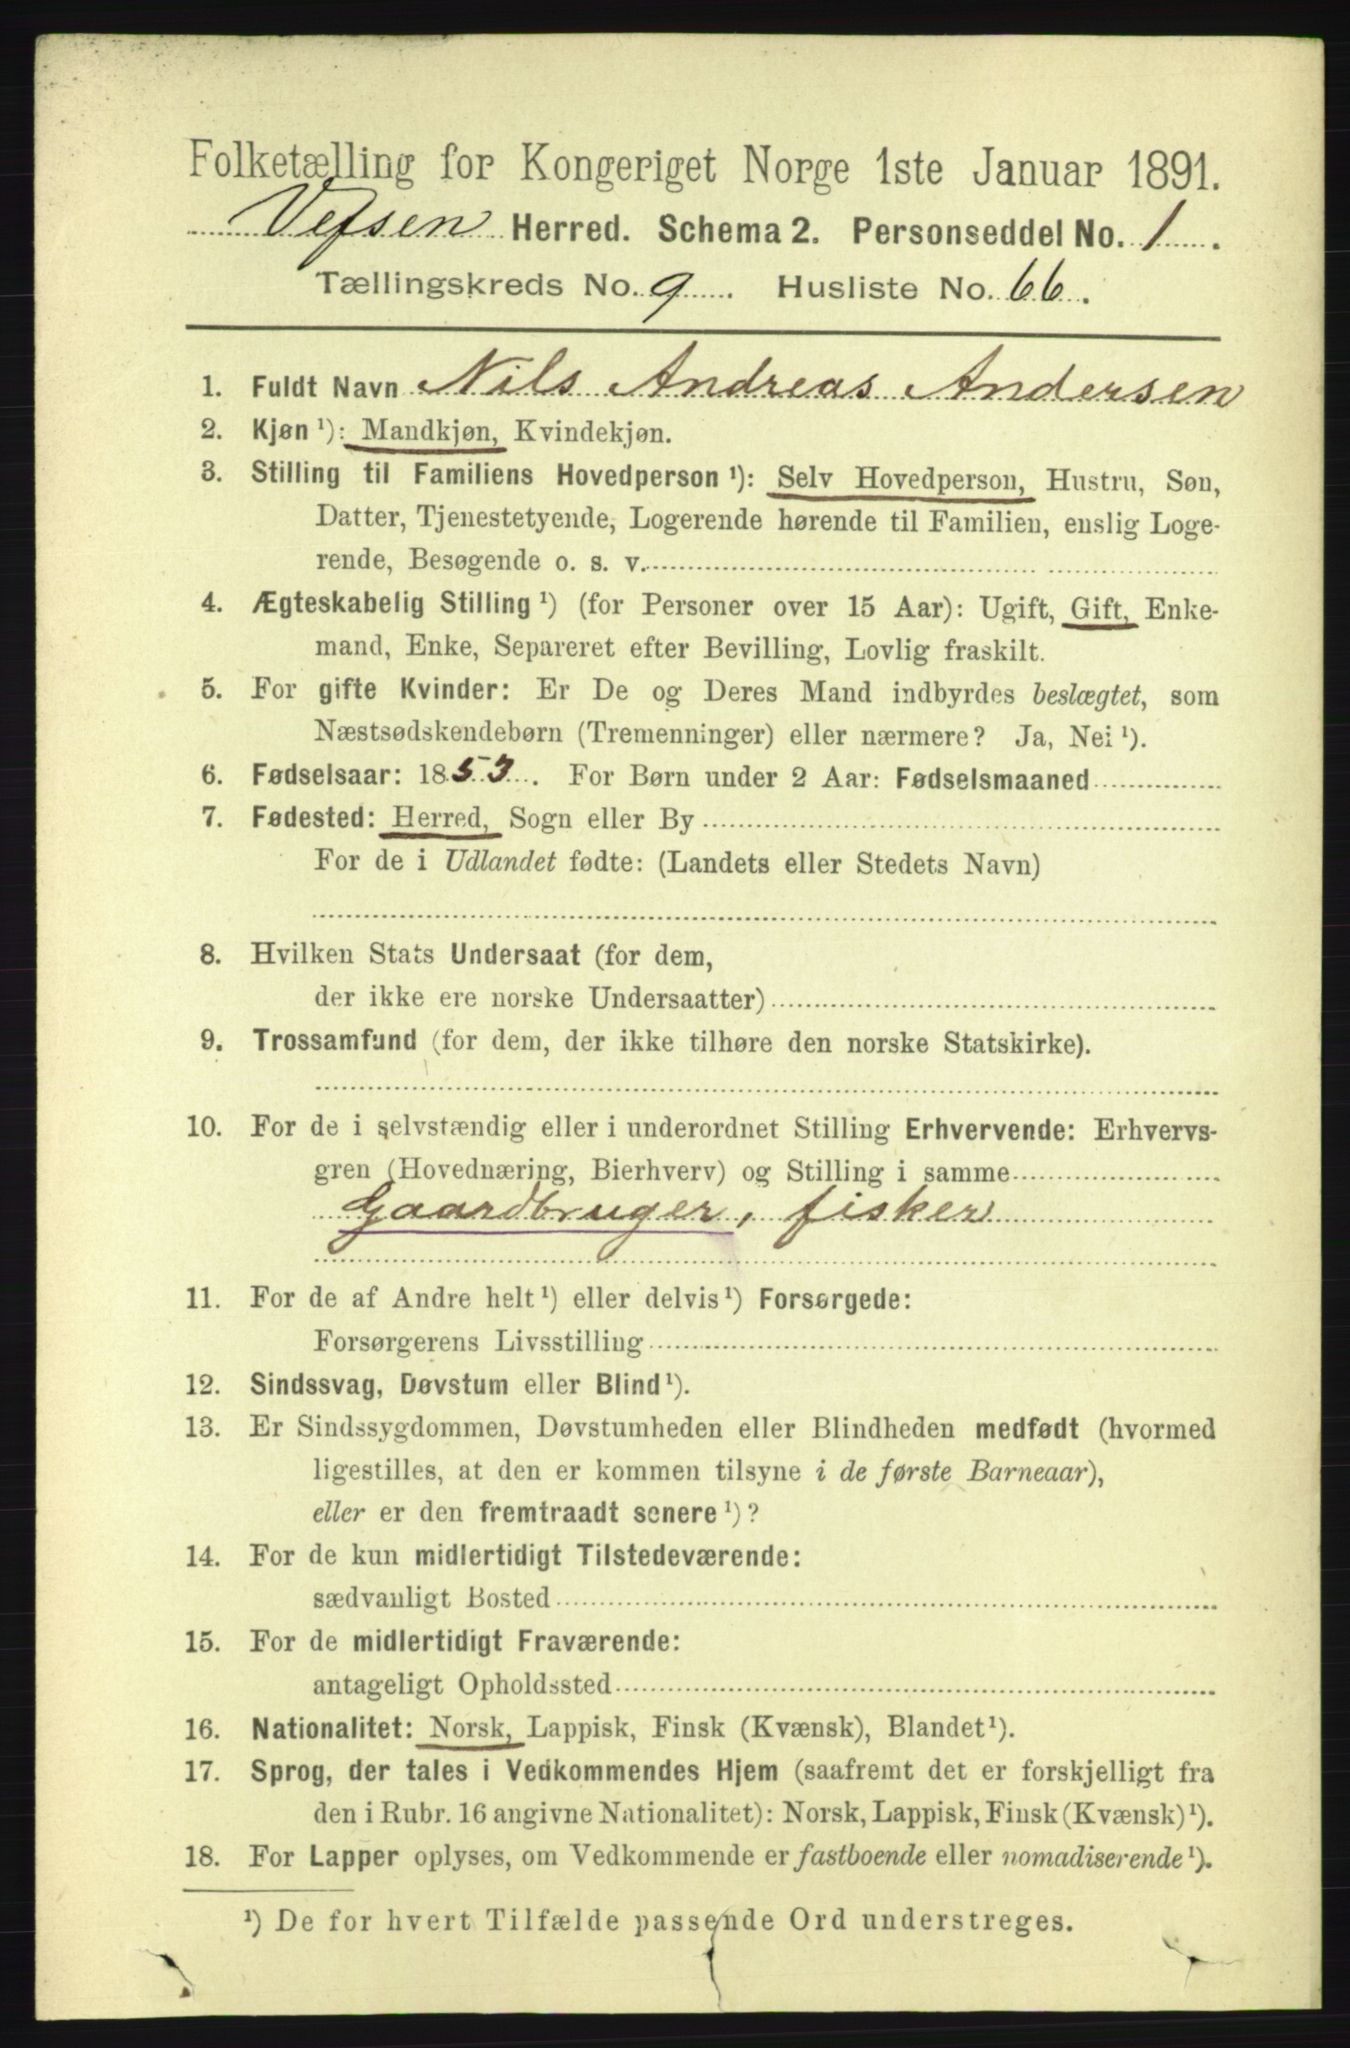 Folketælling for Kongeriget Norge 1ste Januar 1891.
Vefsen Herred. Schema 2. Personseddel No. 1.
Tællingskreds No. 9. Husliste No. 66.
1. Fuldt Navn Nils Andreas Andersen
2. Kjøn ¹): Mandkjøn, Kvindekjøn.
3. Stilling til Familiens Hovedperson ¹): Selv Hovedperson, Hustru, Søn,
Datter, Tjenestetyende, Logerende hørende til Familien, enslig Loge-
rende, Besøgende o. s. v.
4. Ægteskabelig Stilling ¹) (for Personer over 15 Aar): Ugift, Gift, Enke-
mand, Enke, Separeret efter Bevilling, Lovlig fraskilt.
5. For gifte Kvinder: Er De og Deres Mand indbyrdes beslægtet, som
Næstsødskendebørn (Tremenninger) eller nærmere? Ja, Nei ¹).
6. Fødselsaar: 1853. For Børn under 2 Aar: Fødselsmaaned
7. Fødested: Herred, Sogn eller By
For de i Udlandet fødte: (Landets eller Stedets Navn)
8. Hvilken Stats Undersaat (for dem,
der ikke ere norske Undersaatter)
9. Trossamfund (for dem, der ikke tilhøre den norske Statskirke).
10. For de i selvstændig eller i underordnet Stilling Erhvervende: Erhvervs-
gren (Hovednæring, Bierhverv) og Stilling i samme
Gaardbruger, fisker
11. For de af Andre helt ¹) eller delvis ¹) Forsørgede:
Forsørgerens Livsstilling
12. Sindssvag, Døvstum eller Blind ¹).
13. Er Sindssygdommen, Døvstumheden eller Blindheden medfødt (hvormed
ligestilles, at den er kommen tilsyne i de første Barneaar),
eller er den fremtraadt senere ¹)?
14. For de kun midlertidigt Tilstedeværende:
sædvanligt Bosted
15. For de midlertidigt Fraværende:
antageligt Opholdssted
16. Nationalitet: Norsk, Lappisk, Finsk (Kvænsk), Blandet ¹).
17. Sprog, der tales i Vedkommendes Hjem (saafremt det er forskjelligt fra
den i Rubr. 16 angivne Nationalitet): Norsk, Lappisk, Finsk (Kvænsk) ¹).
18. For Lapper oplyses, om Vedkommende er fastboende eller nomadiserende ¹).
¹) De for hvert Tilfælde passende Ord understreges.